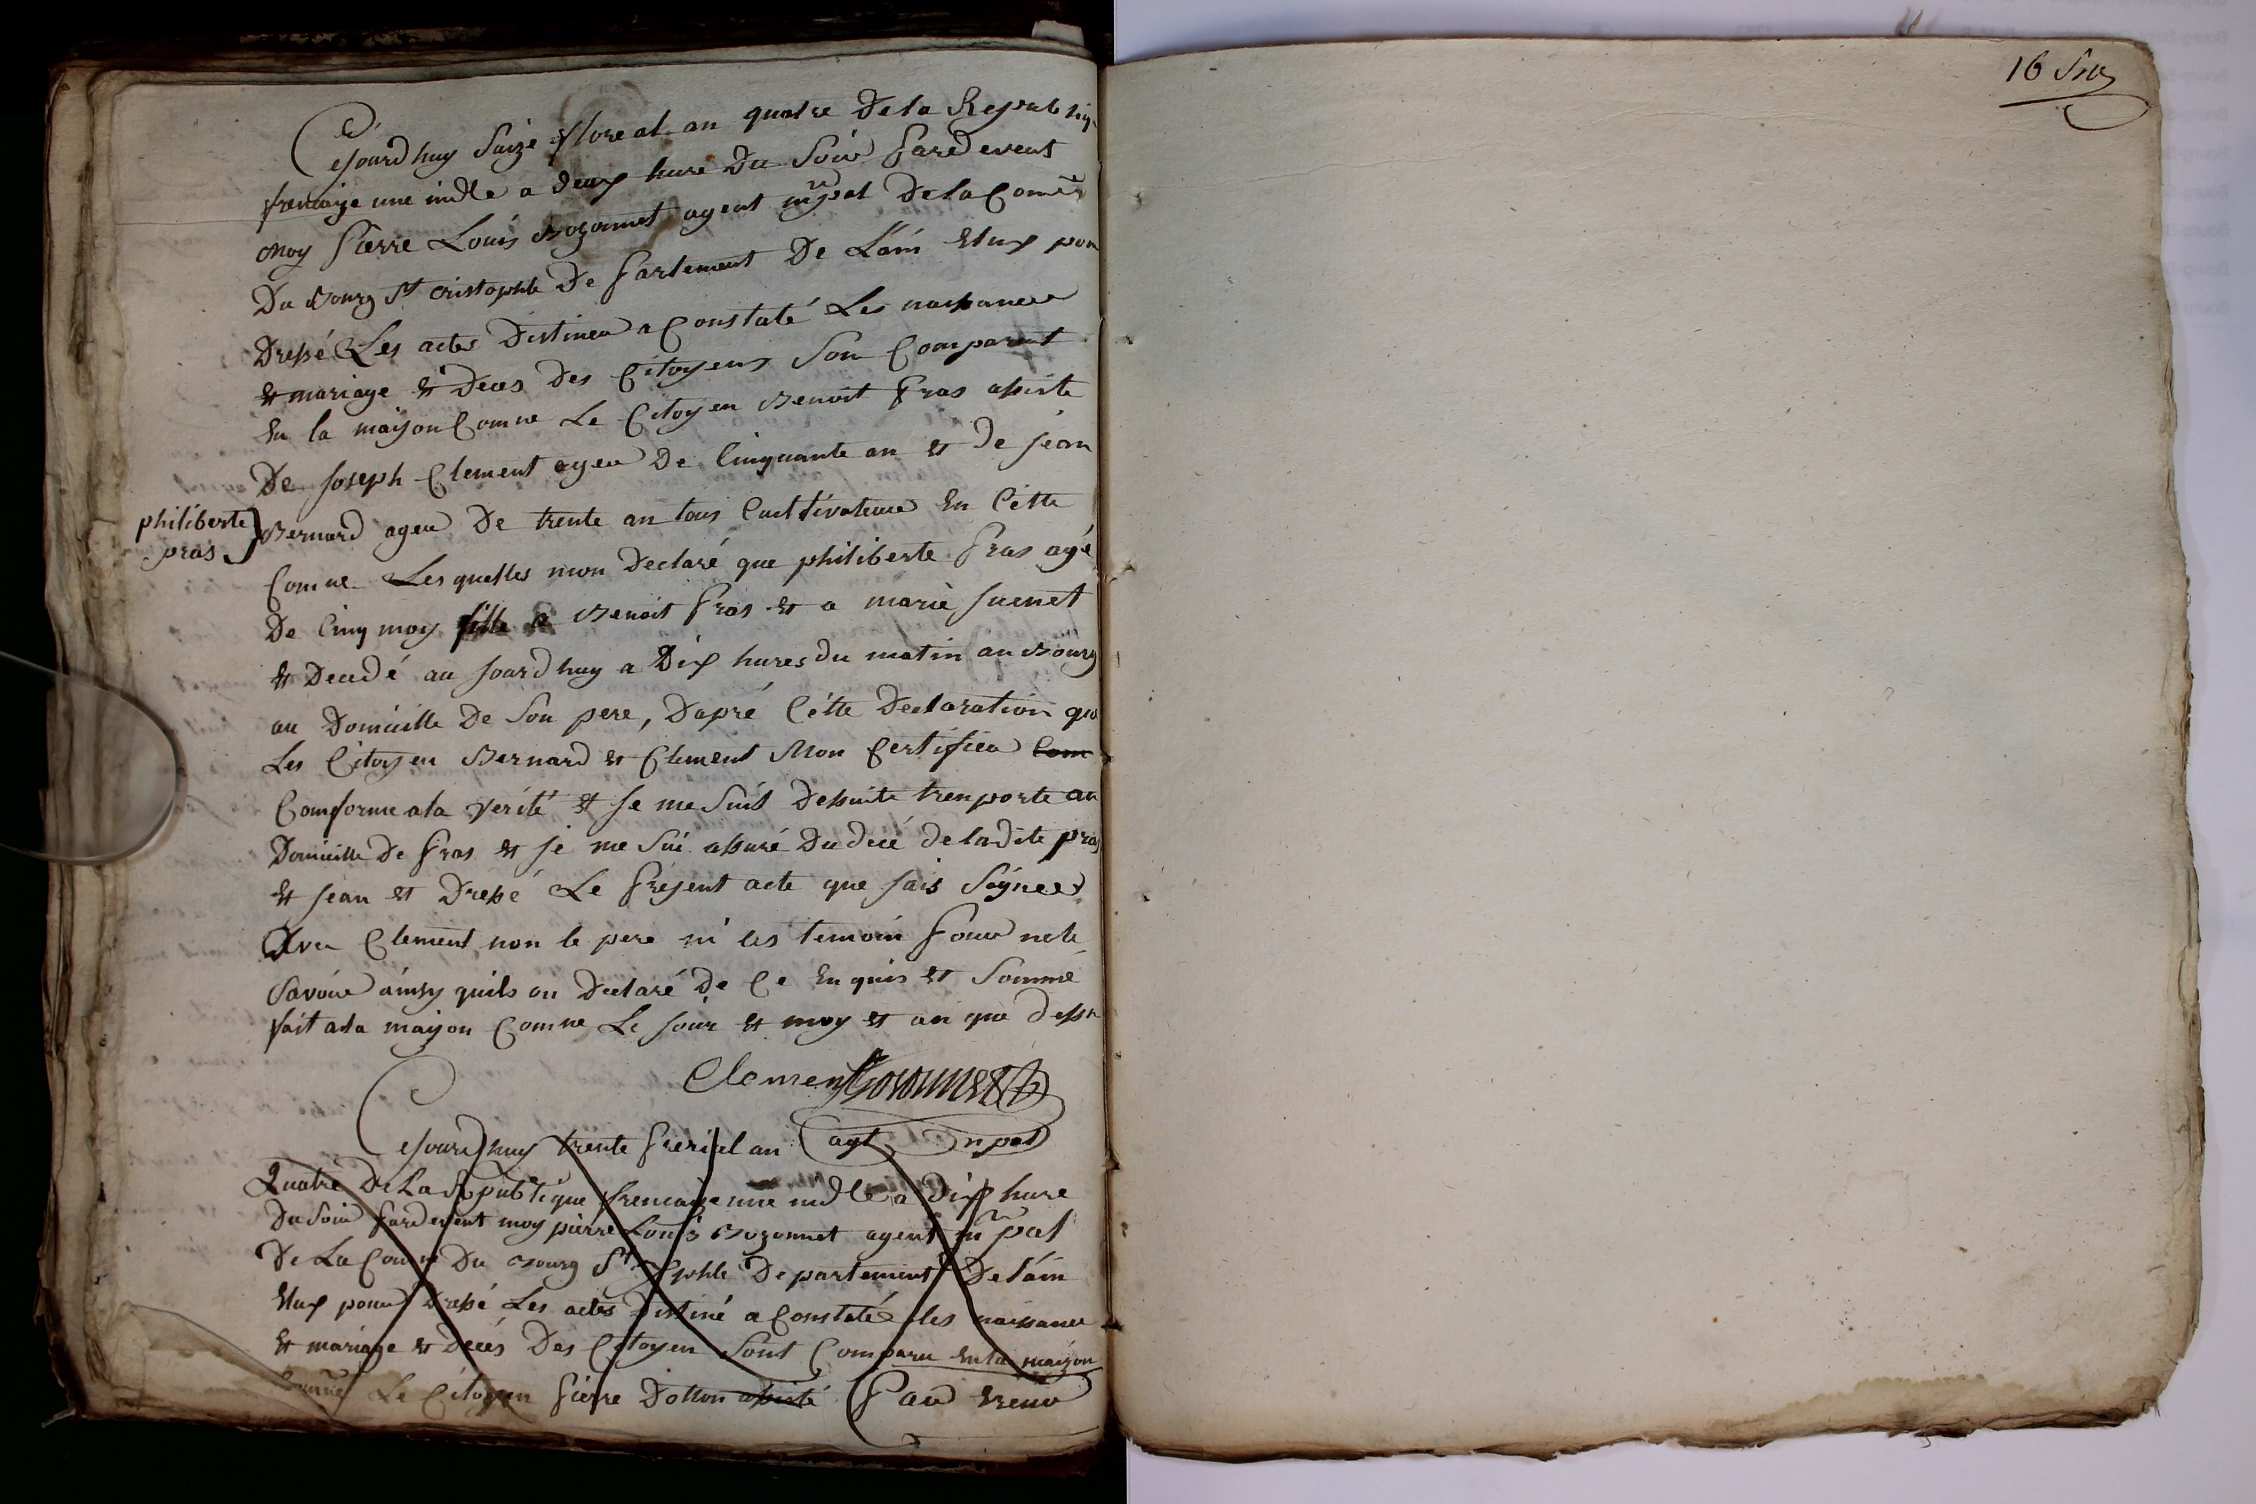 Cejourdhuy Saize floreal an quatre De la Republiq
francaize une indble a deux hure Du Soir Pardevent
moy Pierre Louis Bozonnet agent mpal De la Comne
Du Bourg St Cristophle De Partement De Lain Elux pour
Dressé Les actes Distinea a Constaté Les naissance
et mariage et Deces Des Citoyens Son Comparut
En la maison Comne Le Citoyen Benoit Pras assiste
De Joseph Clement agea De Cinquante an et de jean
philiberte
pras
Bernard agea De trente an tous Cultivateur En Cette
Comne Lesquelles mon Declaré que philiberte Pras agé
De Cinq moy fille a Benoit Pras et a marie
et Decedé au jourdhuy a Dix hures du matin au Bourg
au Domicille De Son pere, Dapré Cette Declaration que
Les Citoyen Bernard et Clement Mon Certifiea Com
Comforme ala verité et Je me Suis Dessuite trenporte au
Domicille De Pras et je me Sui assuré Du decé de ladite pras
et jean et Dressé Le Present acte que jais Signee
Avec Clement non le pere ni les temoin Pour ne le
Savoir ainsy quils on Declaré De Ce Enquis et Sommé
fait ala maison Comne Le jour et moy et an que dessu
Clement Bozonnet
agt mpal
Cejourdhuy trente Prerial an
Quatre De La Republique francaize une indble a dix hure
Du Soir Pardevent moy pierre Louis Bozonnet agent mpal
De La Comne Du Bourg St Departement De lain
Elux pour Dressé Les actes Distiné a Constaté les naissance
et mariage et Decés Des Citoyen Sont Comparu En la maison
Comne Le Citoyen Pierre Dollon assisté Par
16